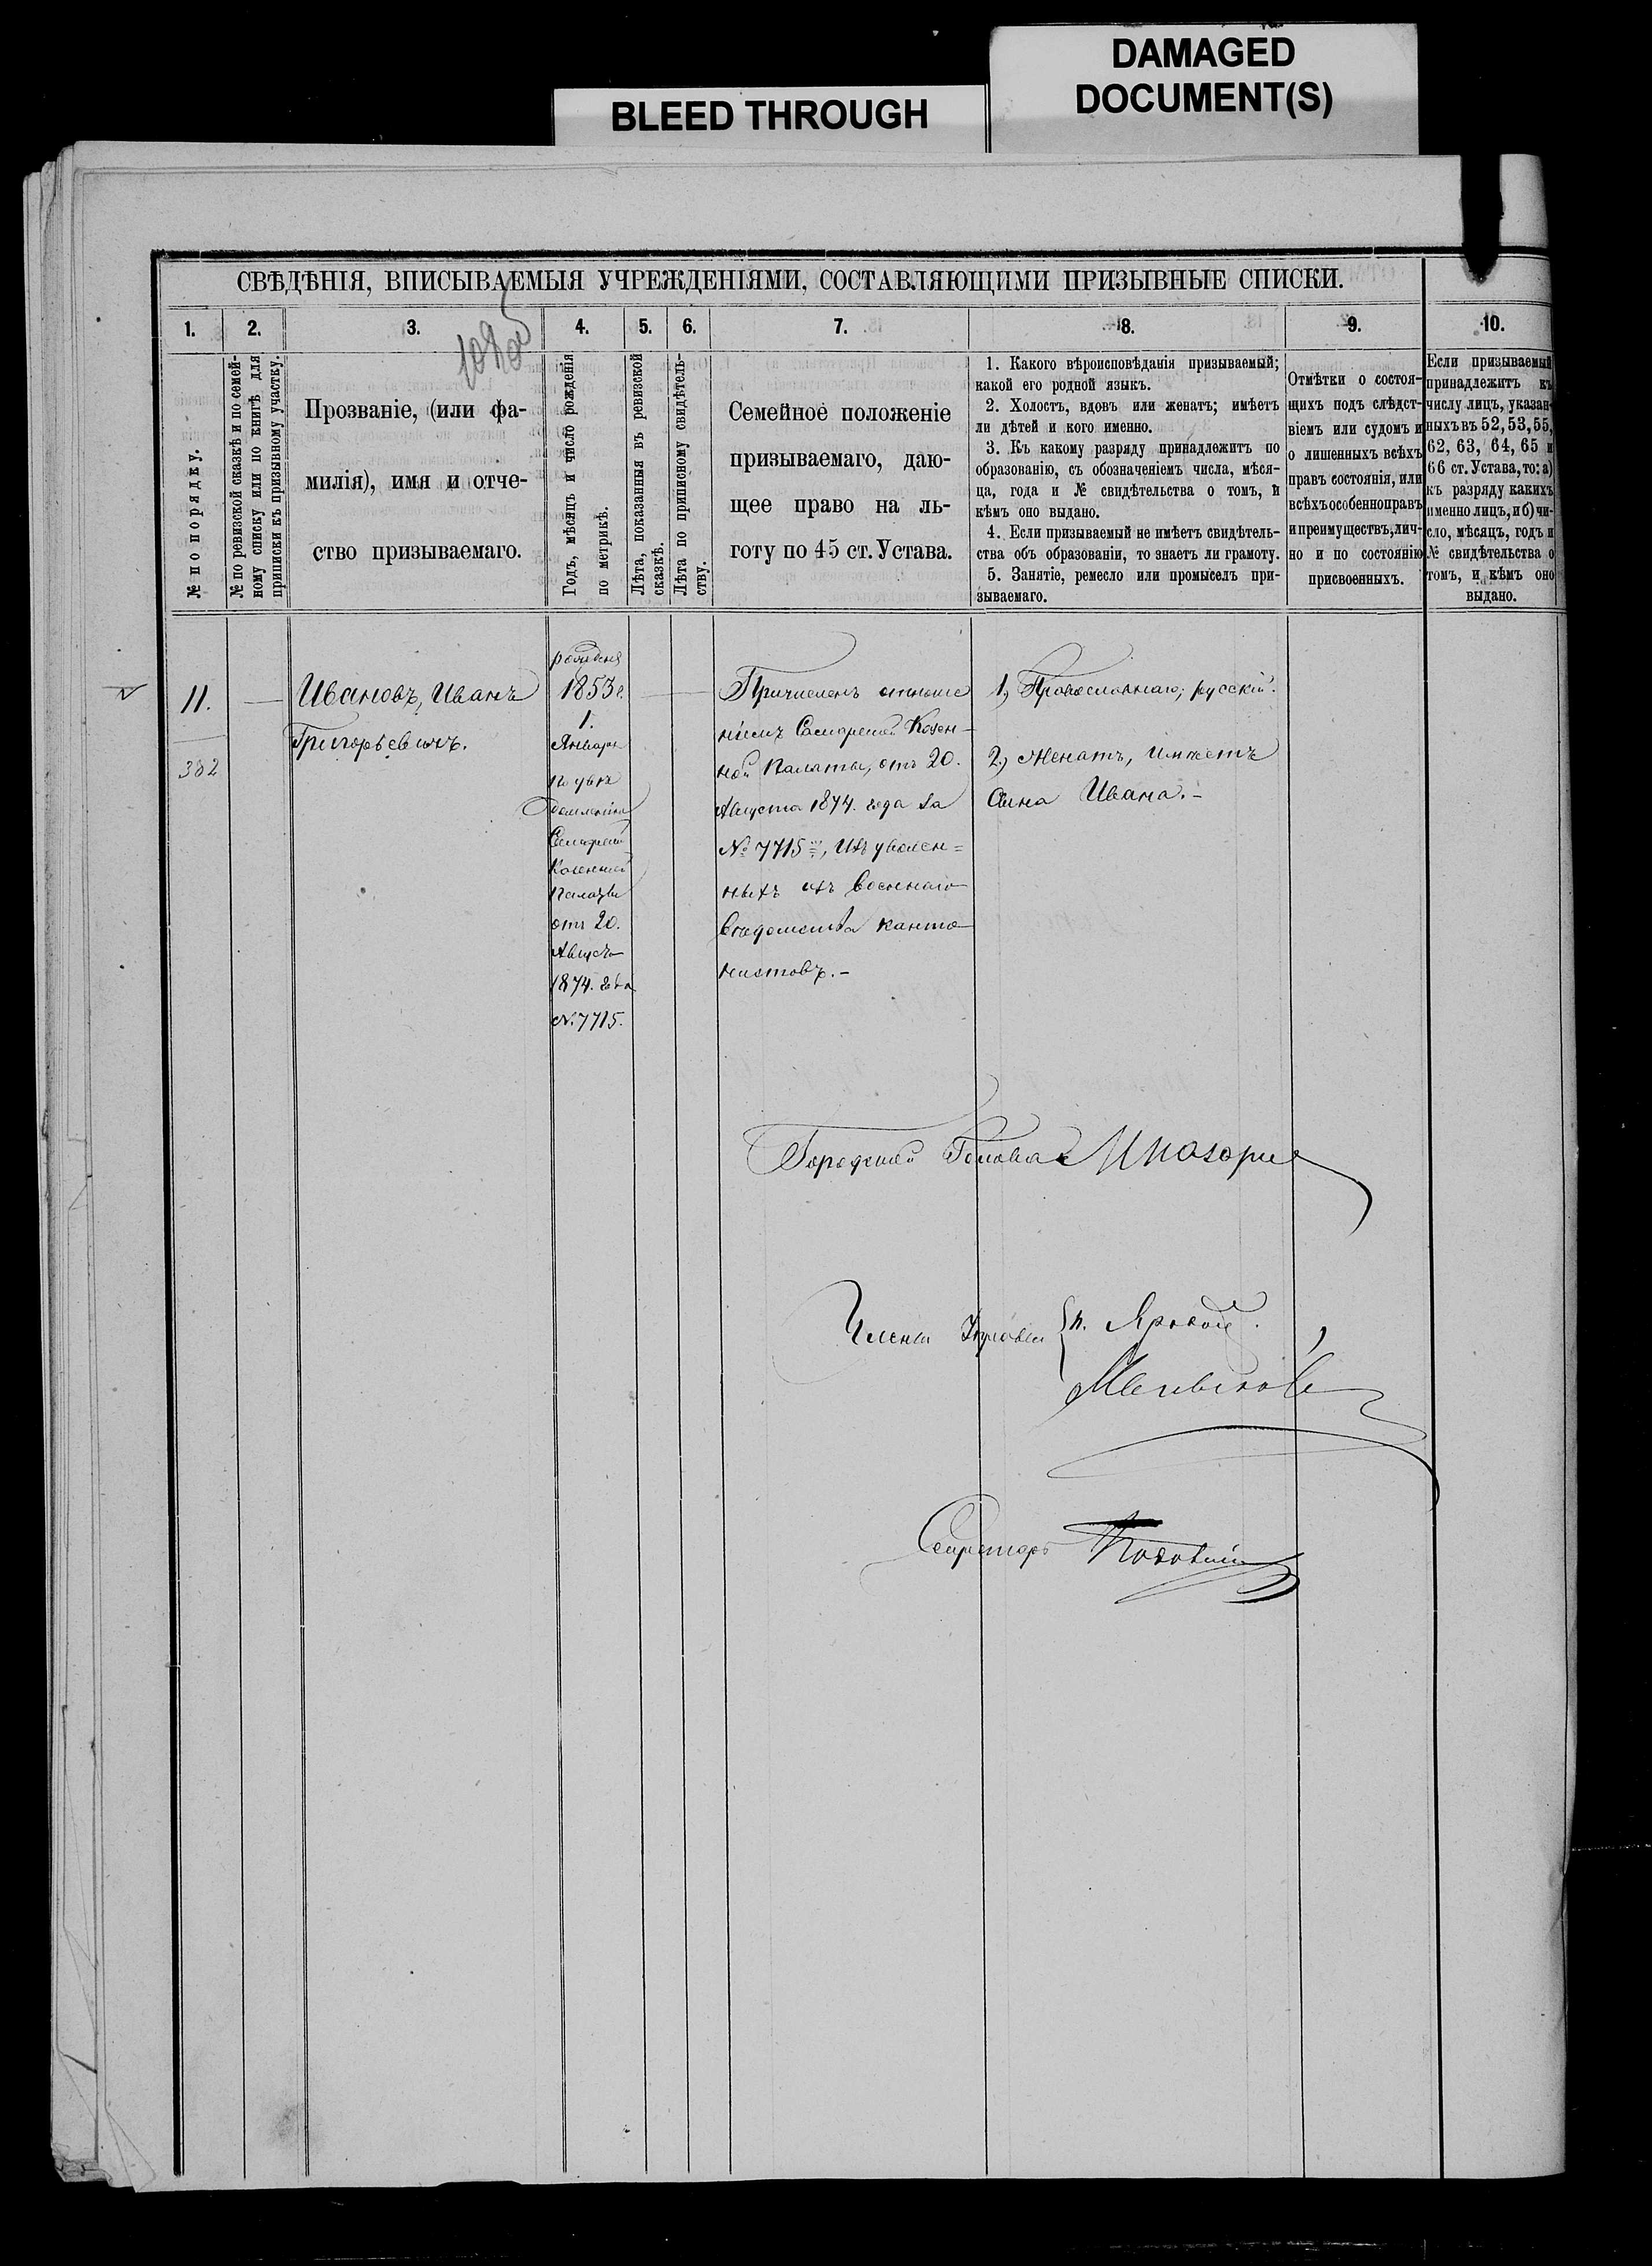 DAMAGED
DOCUMENT(S)
BLEED THROUGH
СВѢДѢНІЯ, ВПИСЫВАЕМЫЯ УЧРЕЖДЕНІЯМИ, СОСТАВЛЯЮЩИМИ ПРИЗЫВНЫЕ СПИСКИ.
1.
2.
3.
4.
5.
6.
7.
8.
9.
10.
№ по порядку.
№ по ревизской сказкѣ и по семей-
ному списку или по книгѣ для
приписки къ призывному участку.
Прозваніе, (или фа-
милія), имя и отче-
ство призываемаго.
Годъ, мѣсяцъ и число рожденія
по метрикѣ.
Лѣта, показанныя въ ревизской
сказкѣ.
Лѣта по приписному свидѣтель-
ству.
Семейное положеніе
призываемаго, даю-
щее право на ль-
готу по 45 ст. Устава.
1. Какого вѣроисповѣданія призываемый;
какой его родной языкъ.
2. Холостъ, вдовъ или женатъ; имѣетъ
ли дѣтей и кого именно.
3. Къ какому разряду принадлежитъ по
образованію, съ обозначеніемъ числа, мѣся-
ца, года и № свидѣтельства о томъ, и
кѣмъ оно выдано.
4. Если призываемый не имѣетъ свидѣтель-
ства объ образованіи, то знаетъ ли грамоту.
5. Занятіе, ремесло или промыселъ при-
зываемаго.
Отмѣтки о состоя-
щихъ подъ слѣдст-
віемъ или судомъ и
о лишенныхъ всѣхъ
правъ состоянія, или
всѣхъ особенно правъ
и преимуществъ, лич-
но и по состоянію
присвоенныхъ.
Если призываемый
принадлежитъ къ
числу лицъ, указан-
ныхъ въ 52, 53, 55,
62, 63, 64, 65 и
66 ст. Устава, то: а)
къ разряду какихъ
именно лицъ, и б) чи-
сло, мѣсяцъ, годъ и
№ свидѣтельства о
томъ, и кѣмъ оно
выдано.
11.
382
Ивановъ, Иванъ
Григорьевичъ.
1853 г.
1.
Января
Казенной
Палаты
отъ 20.
Август
1874. года
№ 7715.
Причисленъ отноше
ніемъ Самарской Казен-
ной Палаты, отъ 20.
Августа 1874. года за
№ 7715, изъ уволен=
ныхъ изъ военнаго
вѣдомства канто-
нистовъ.-
1, Православнаго; русскій.
2, Женатъ, имѣетъ
сына Ивана.-
Городской Голова
Члены Управы
Секретарь